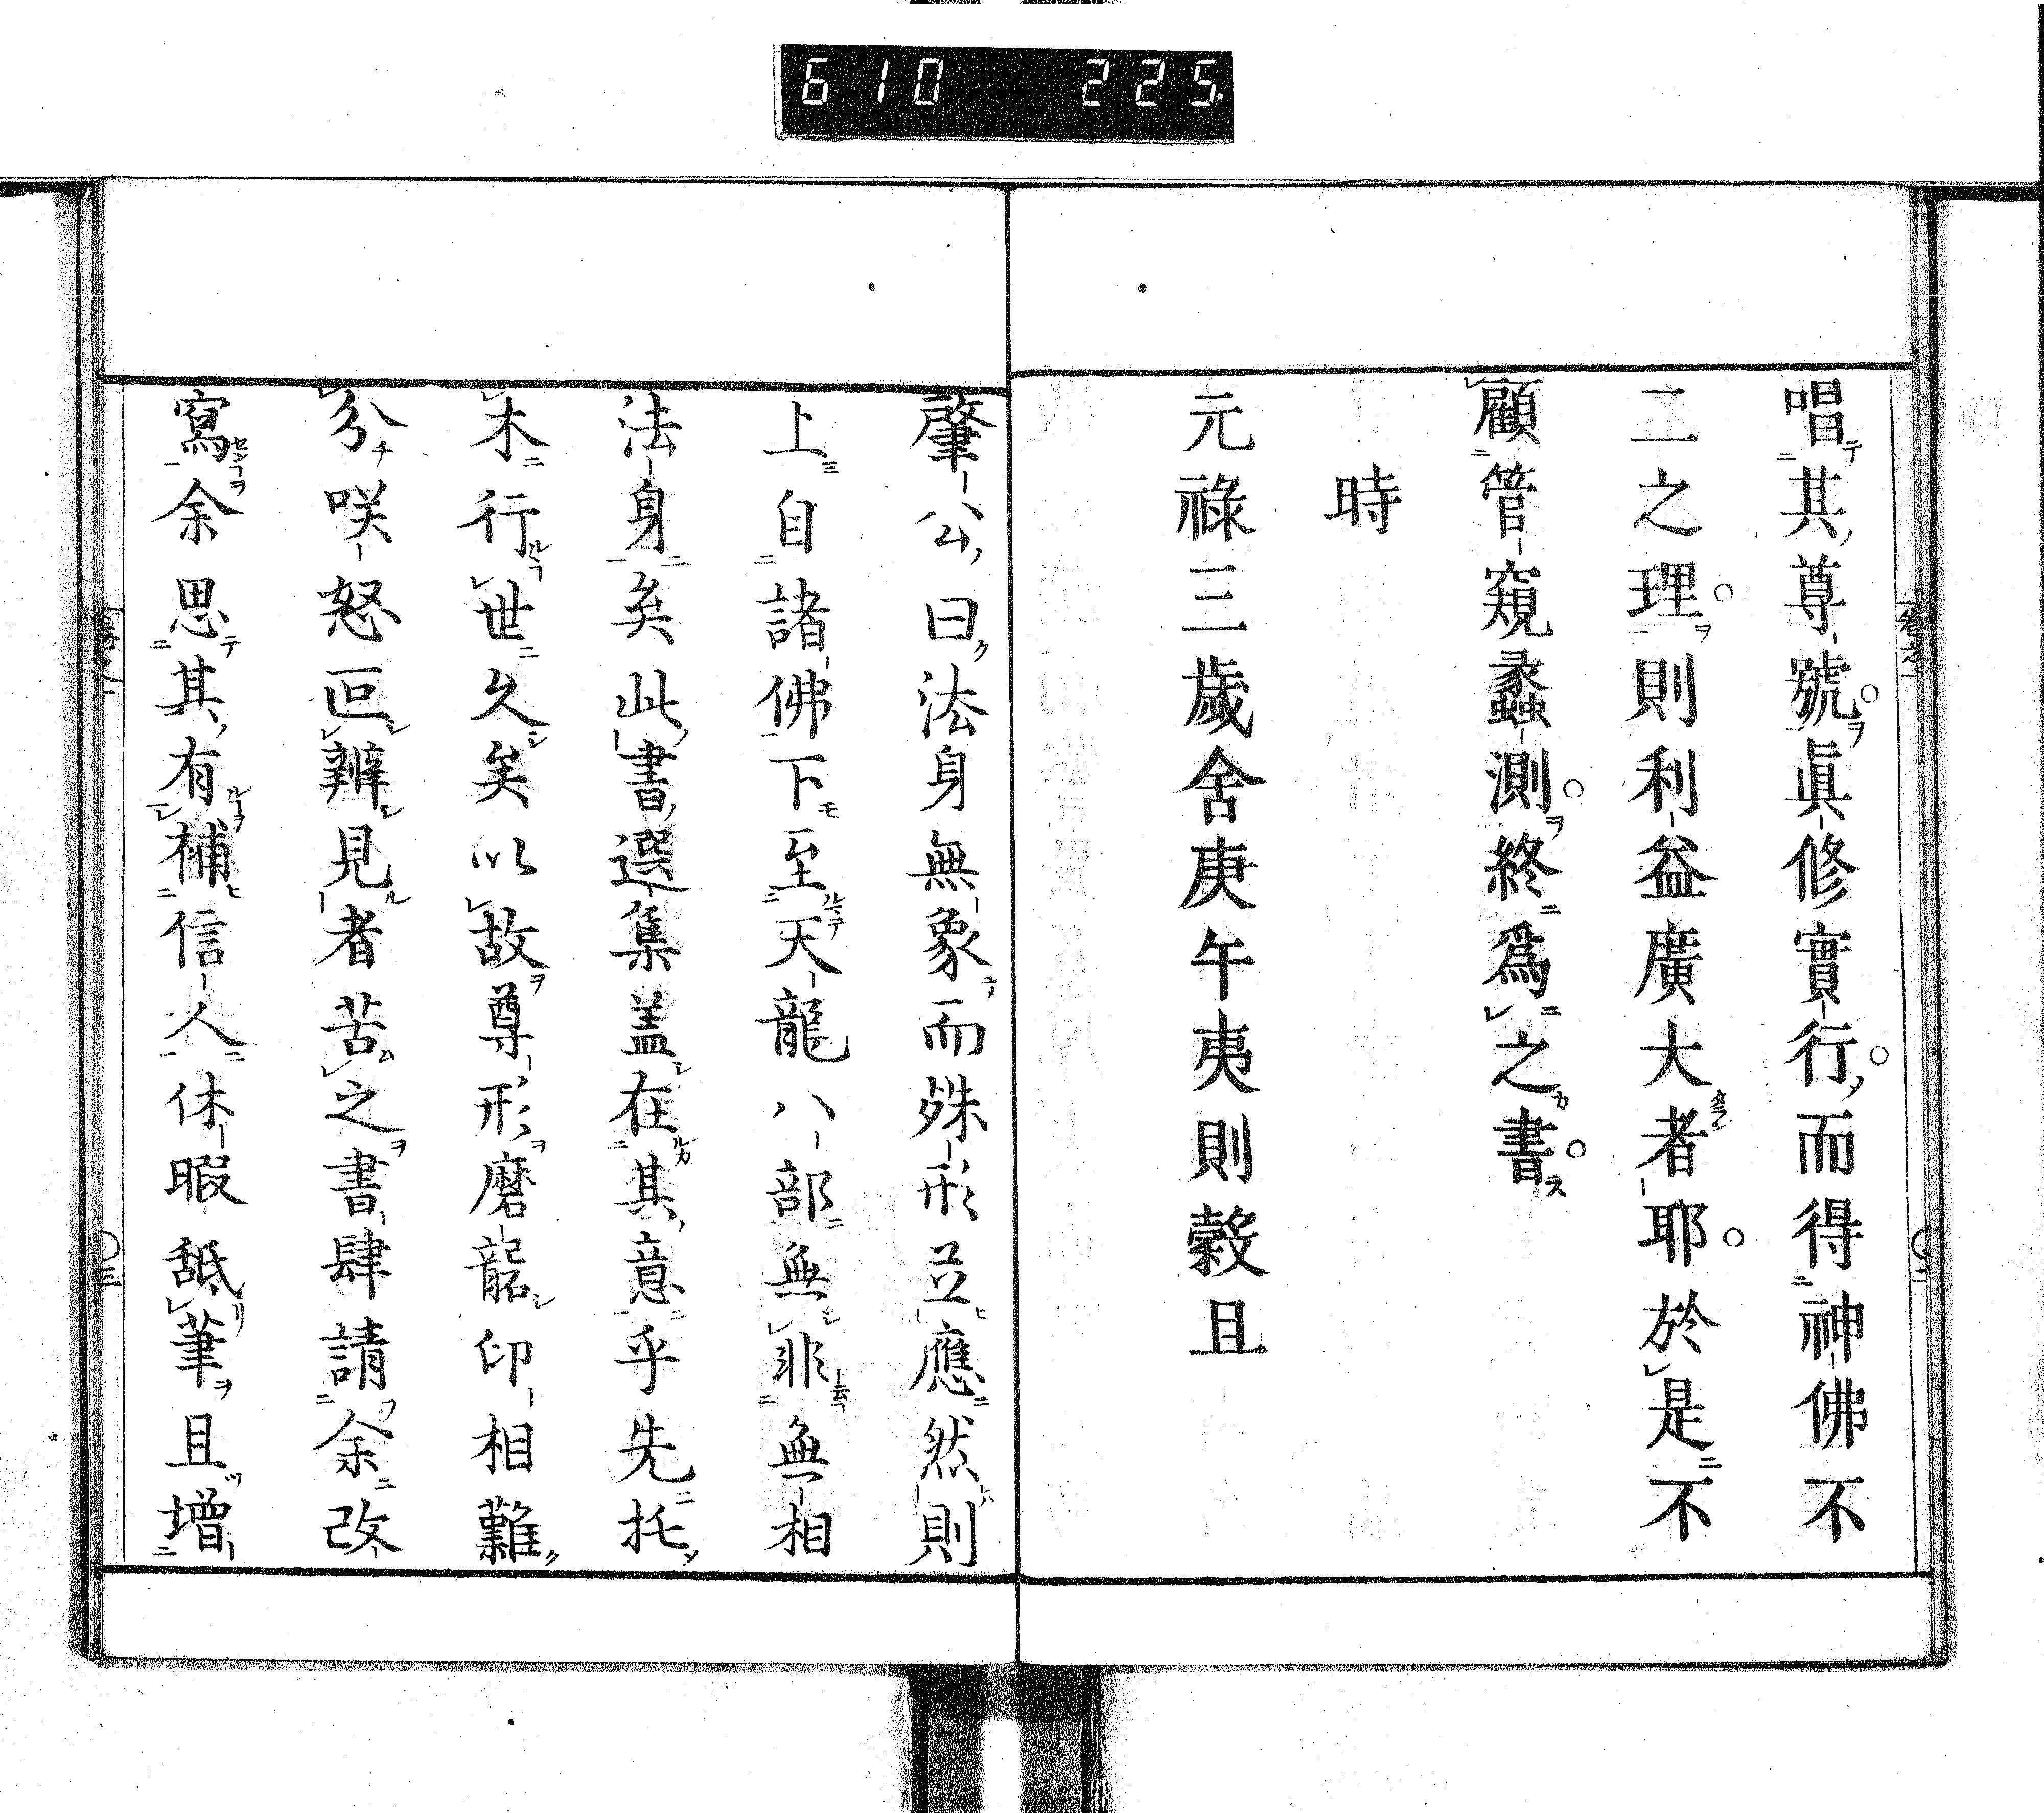 610 225
唱其尊號眞修實行而得神佛不
二之理則利益廣大者耶於是不
顧管窺蠡測終爲之書
時
元祿三歲舍庚午夷則穀且
肇公曰法身無象而殊形並應然則
上自諸佛下至天龍八部無非無相
法身矣此書選集盖在其意乎先托
木行世久矣以故尊形磨龍印相難
分咲怒叵辨見者苦之書肆請余改
寫余思其有補信人休暇舐筆且增